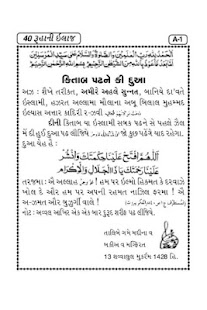 40 રૂહાની ઇલાજ
A-1
اَلْحَمْدُ لِلّٰهِ رَبِّ الْعٰلَمِيْنَ وَالصَّلٰوةُ وَالسَّلَامُ عَلٰى سَيِّدِ الْمُرْسَلِيْنَ
اَمَّا بَعْدُ فَاَعُوْذُ بِاللّٰهِ مِنَ الشَّيْطٰنِ الرَّجِيْمِ بِسْمِ اللّٰهِ الرَّحْمٰنِ الرَّحِيْمِ
કિતાબ પઢને કી દુઆ
અઝ : શૈખે તરીકત, અમીરે અહલે સુન્નત, બાનિયે દા'વતે
ઇસ્લામી, હઝરત અલ્લામા મૌલાના અબૂ બિલાલ મુહમ્મદ
ઇલ્યાસ અત્તાર કાદિરી ર-ઝવી
દીની કિતાબ યા ઇસ્લામી સબક પઢને સે પહલે ઝૈલ
મેં દી હુઈ દુઆ પઢ લીજિયે જો કુછ પઢેંગે યાદ રહેગા.
દુઆ યેહ હૈ :
اَللّٰهُمَّ افْتَحْ عَلَيْنَا حِكْمَتَكَ وَانْشُرْ
عَلَيْنَا رَحْمَتَكَ يَا ذَا الْجَلَالِ وَالْاِكْرَام
તરજમા : ઐ અલ્લાહ હમ પર ઇલ્મો હિક્મત કે દરવાઝે
ખોલ દે ઔર હમ પર અપની રહમત નાઝિલ ફરમા ! ઐ
અ-ઝમત ઔર બુઝુર્ગી વાલે !
નોટ : અવ્વલ આખિર એક એક બાર દુરૂદ શરીફ પઢ લીજિયે.
તાલિબે ગમે મદીના વ
બકીઅ વ મગ્ફિરત
13 શવ્વાલુલ મુકર્રમ 1428 હિ.